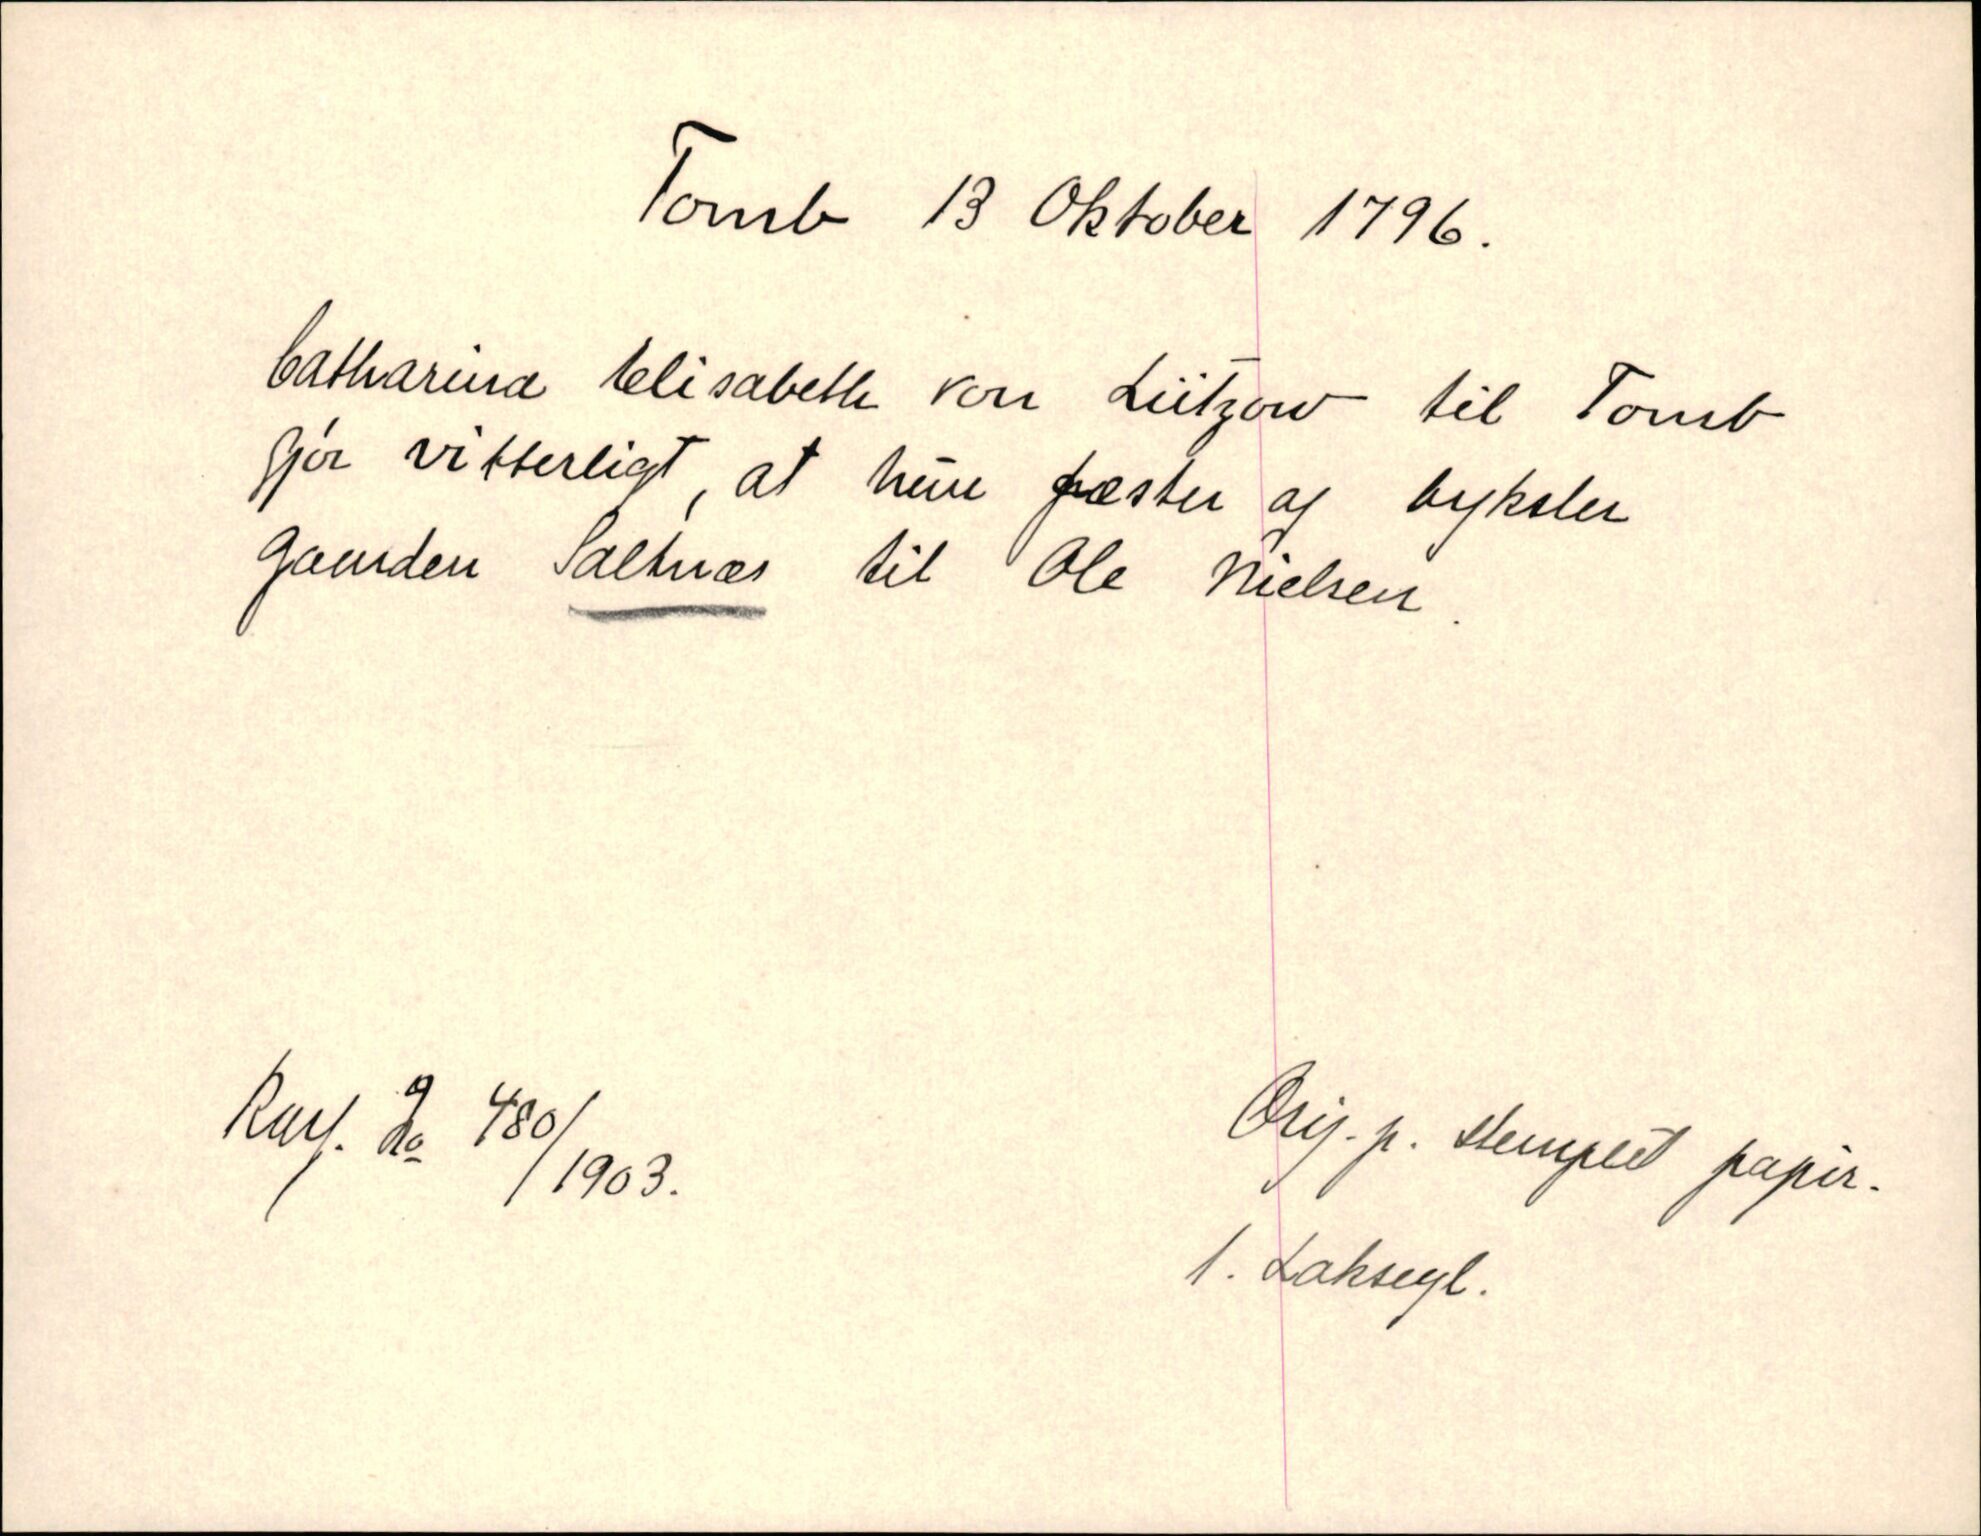 Tomb 13 Oktober 1796.
Catharina Elisabeth von Lützow til Tomb
gjør vitterligt, at hun fæster og byksler
gaarden Saltnæs til Ole Nielsen.
480/1903.
Orig. p. stemplet papir.
1. Laksegl.